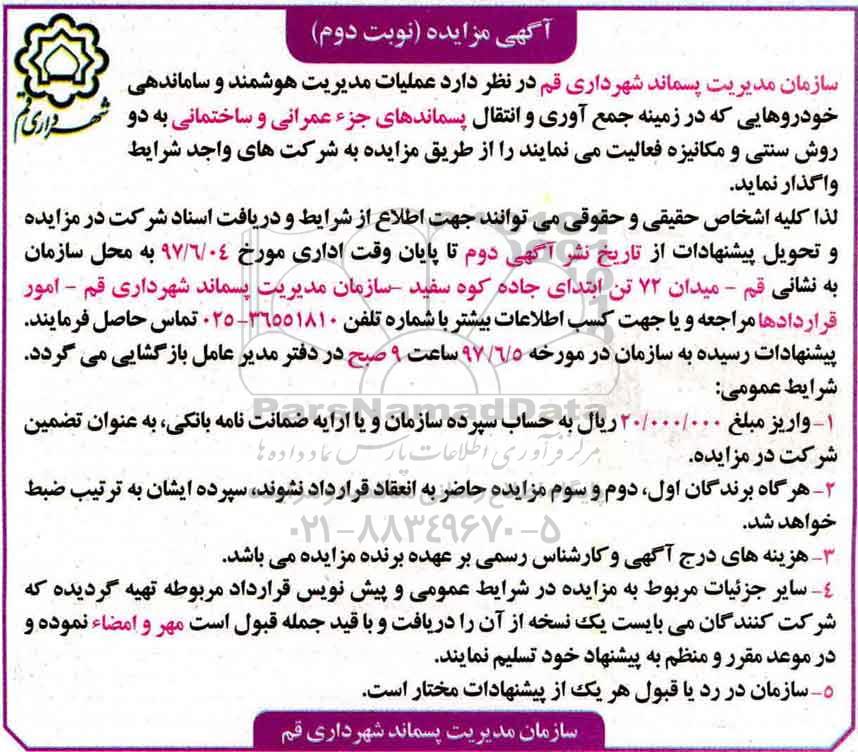 آگهی مزایده (نوبت دوم)
شهرداری قم
سازمان مدیریت پسماند شهرداری قم در نظر دارد عملیات مدیریت هوشمند و ساماندهی
خودروهایی که در زمینه جمع آوری و انتقال پسماندهای جزء عمرانی و ساختمانی به دو
روش سنتی و مکانیزه فعالیت می نمایند را از طریق مزایده به شرکت های واجد شرایط
واگذار نماید.
لذا کلیه اشخاص حقیقی و حقوقی می توانند جهت اطلاع از شرایط و دریافت اسناد شرکت در مزایده
و تحویل پیشنهادات از تاریخ نشر آگهی دوم تا پایان وقت اداری مورخ ۹۷/۶/۰۴ به محل سازمان
به نشانی قم - میدان ۷۲ تن ابتدای جاده کوه سفید -سازمان مدیریت پسماند شهرداری قم - امور
قراردادها مراجعه و یا جهت کسب اطلاعات بیشتر با شماره تلفن ۳۶۵۵۱۸۱۰-۰۲۵ تماس حاصل فرمایند.
پیشنهادات رسیده به سازمان در مورخه ۹۷/۶/۵ ساعت ۹ صبح در دفتر مدیر عامل بازگشایی می گردد.
شرایط عمومی:
ParsNamadData
۱- واریز مبلغ ۲۰/۰۰۰/۰۰۰ ریال به حساب سپرده سازمان و یا ارایه ضمانت نامه بانکی، به عنوان تضمین
شرکت در مزایده.
مرکز فرآوری اطلاعات پارس نماد داده ها
۲- هر گاه برندگان اول، دوم و سوم مزایده حاضر به انعقاد قرارداد نشوند، سپرده ایشان به ترتیب ضبط
خواهد شد.
۰۲۱-۸۸۳۴۹۶۷۰-۵
۳- هزینه های درج آگهی و کارشناس رسمی بر عهده برنده مزایده می باشد.
۴- سایر جزئیات مربوط به مزایده در شرایط عمومی و پیش نویس قرارداد مربوطه تهیه گردیده که
شرکت کنندگان می بایست یک نسخه از آن را دریافت و با قید جمله قبول است مهر و امضاء نموده و
در موعد مقرر و منظم به پیشنهاد خود تسلیم نمایند.
۵- سازمان در رد یا قبول هر یک از پیشنهادات مختار است.
سازمان مدیریت پسماند شهرداری قم